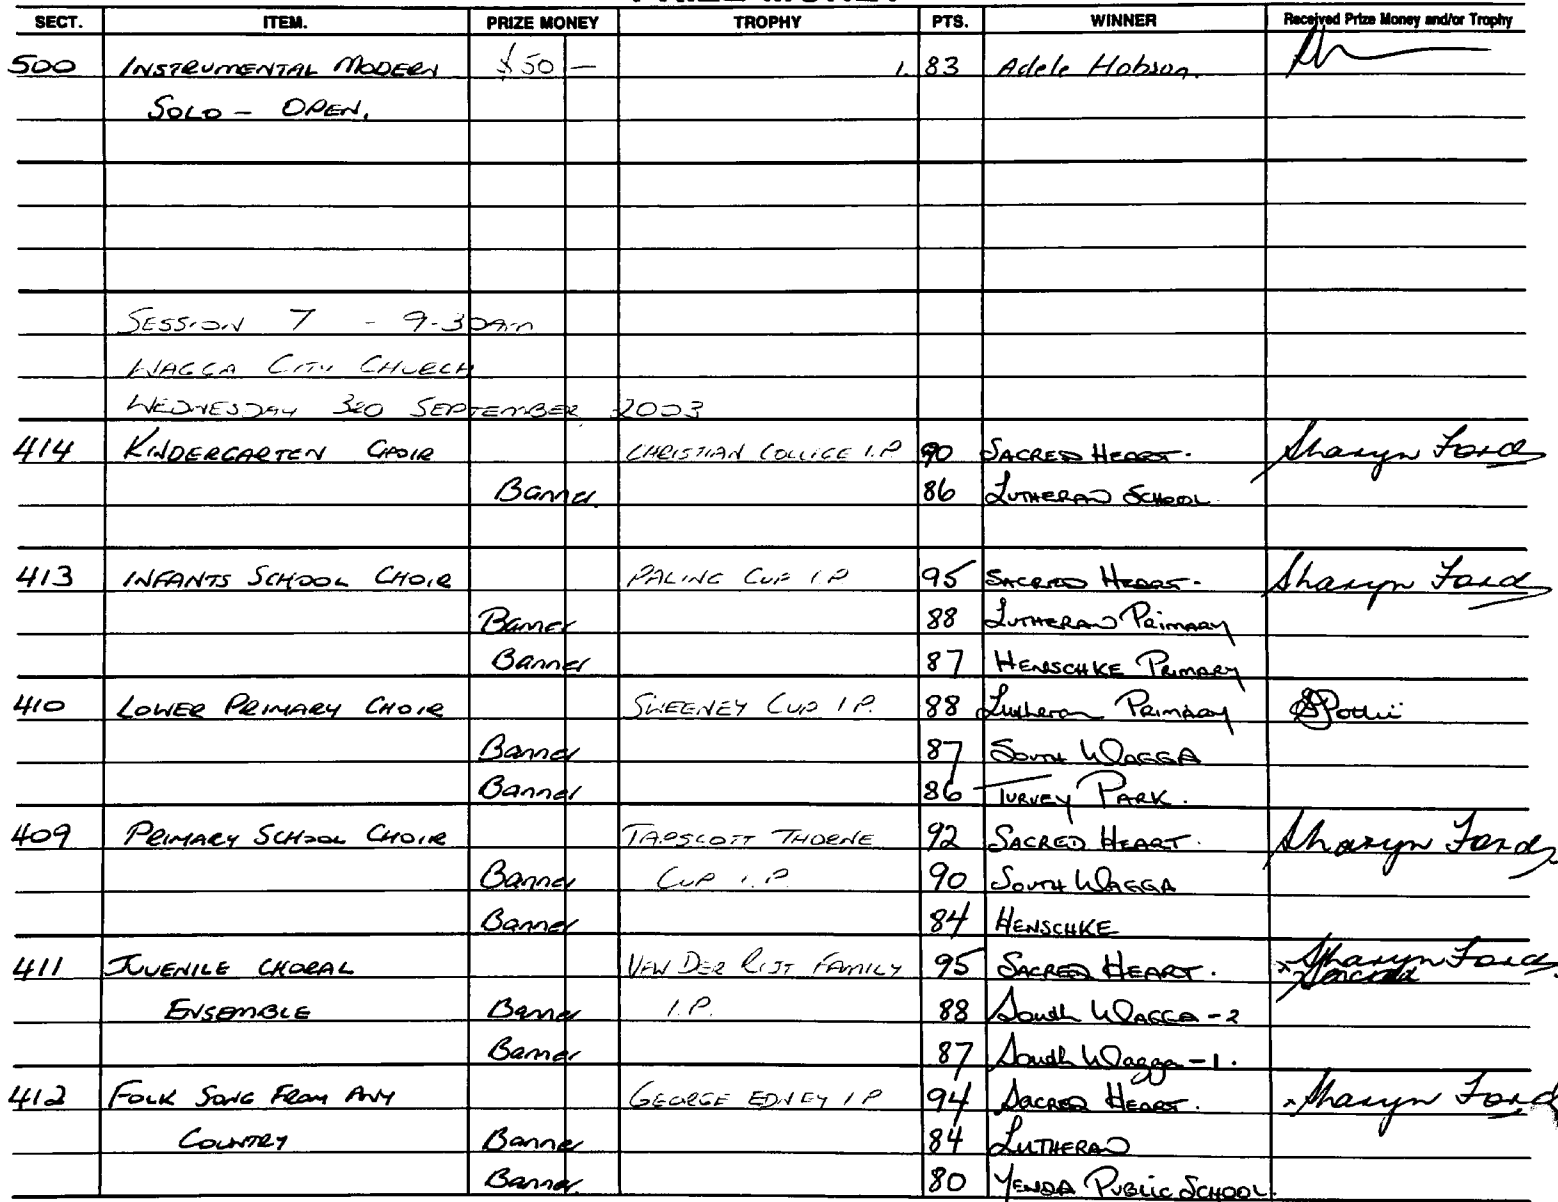 PRIZE MONEY
SECT. ITEM. PRIZE MONEY TROPHY PTS. WINNER Received Prize Money and/or Trophy
500 INSTRUMENTAL MODERN $50 — 1. 83 Adele Hobson.
SOLO - OPEN.
SESSION 7 - 9-30am
WAGGA CITY CHURCH
WEDNESDAY 3RD SEPTEMBER 2003
414 KINDERGARTEN CHOIR CHRISTIAN COLLEGE I.P 90 SACRED HEART. Sharyn Ford
Banner 86 LUTHERAN SCHOOL.
413 INFANTS SCHOOL CHOIR PALING CUP I.P 95 SACRED HEART. Sharyn Ford
Banner 88 LUTHERAN PRIMARY
Banner 87 HENSCHKE PRIMARY
410 LOWER PRIMARY CHOIR SWEENEY CUP I.P. 88 Lutheran PRIMARY
Banner 87 SOUTH WAGGA
Banner 86 TURVEY PARK.
409 PRIMARY SCHOOL CHOIR TAPSCOTT THORNE 92 SACRED HEART. Sharyn Ford
Banner CUP I.P. 90 SOUTH WAGGA
Banner 84 HENSCHKE
411 JUVENILE CHORAL VAN DER RIJT FAMILY 95 SACRED HEART. x Sharyn Ford
ENSEMBLE Banner I.P. 88 South WAGGA - 2
Banner 87 South Wagga - 1.
412 FOLK SONG FROM ANY GEORGE EDNEY I P 94 SACRED HEART. x Sharyn Ford
COUNTRY Banner 84 LUTHERAN
Banner 80 YENDA PUBLIC SCHOOL.